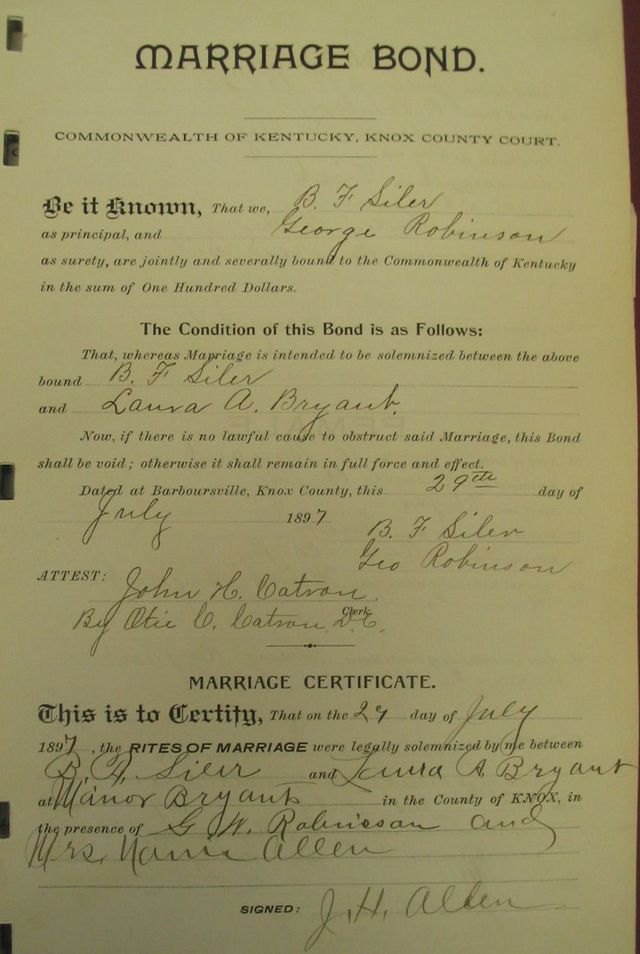 MARRIAGE BOND.
COMMONWEALTH OF KENTUCKY, KNOX COUNTY COURT.
Be it Known, That we, B. F Siler
as principal, and George Robinson
as surety, are jointly and severally bound to the Commonwealth of Kentucky
in the sum of One Hundred Dollars.
The Condition of this Bond is as Follows:
That, whereas Marriage is intended to be solemnized between the above
bound B. F Siler
and Laura A. Bryant.
Now, if there is no lawful cause to obstruct said Marriage, this Bond
shall be void; otherwise it shall remain in full force and effect.
Dated at Barboursville, Knox County, this 29th day of
July 1897
B. F Siler
Geo Robinson
ATTEST: John H. Catron
Clerk
By Otie C. Catron D.C.
MARRIAGE CERTIFICATE.
This is to Certify, That on the 29 day of July
1897, the RITES OF MARRIAGE were legally solemnized by me between
B. F. Siler and Laura A. Bryant
at Manor Bryants in the County of KNOX, in
the presence of G. W. Robinson and
Mrs. Allen
SIGNED: J. H. Allen